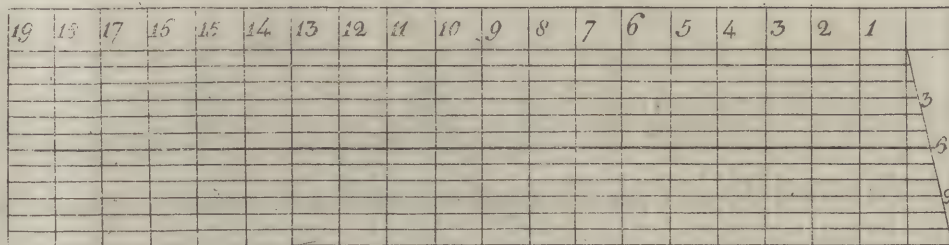 19 18 17 16 15 14 13 12 11 10 9 8 7 6 5 4 3 2 1
3
6
9